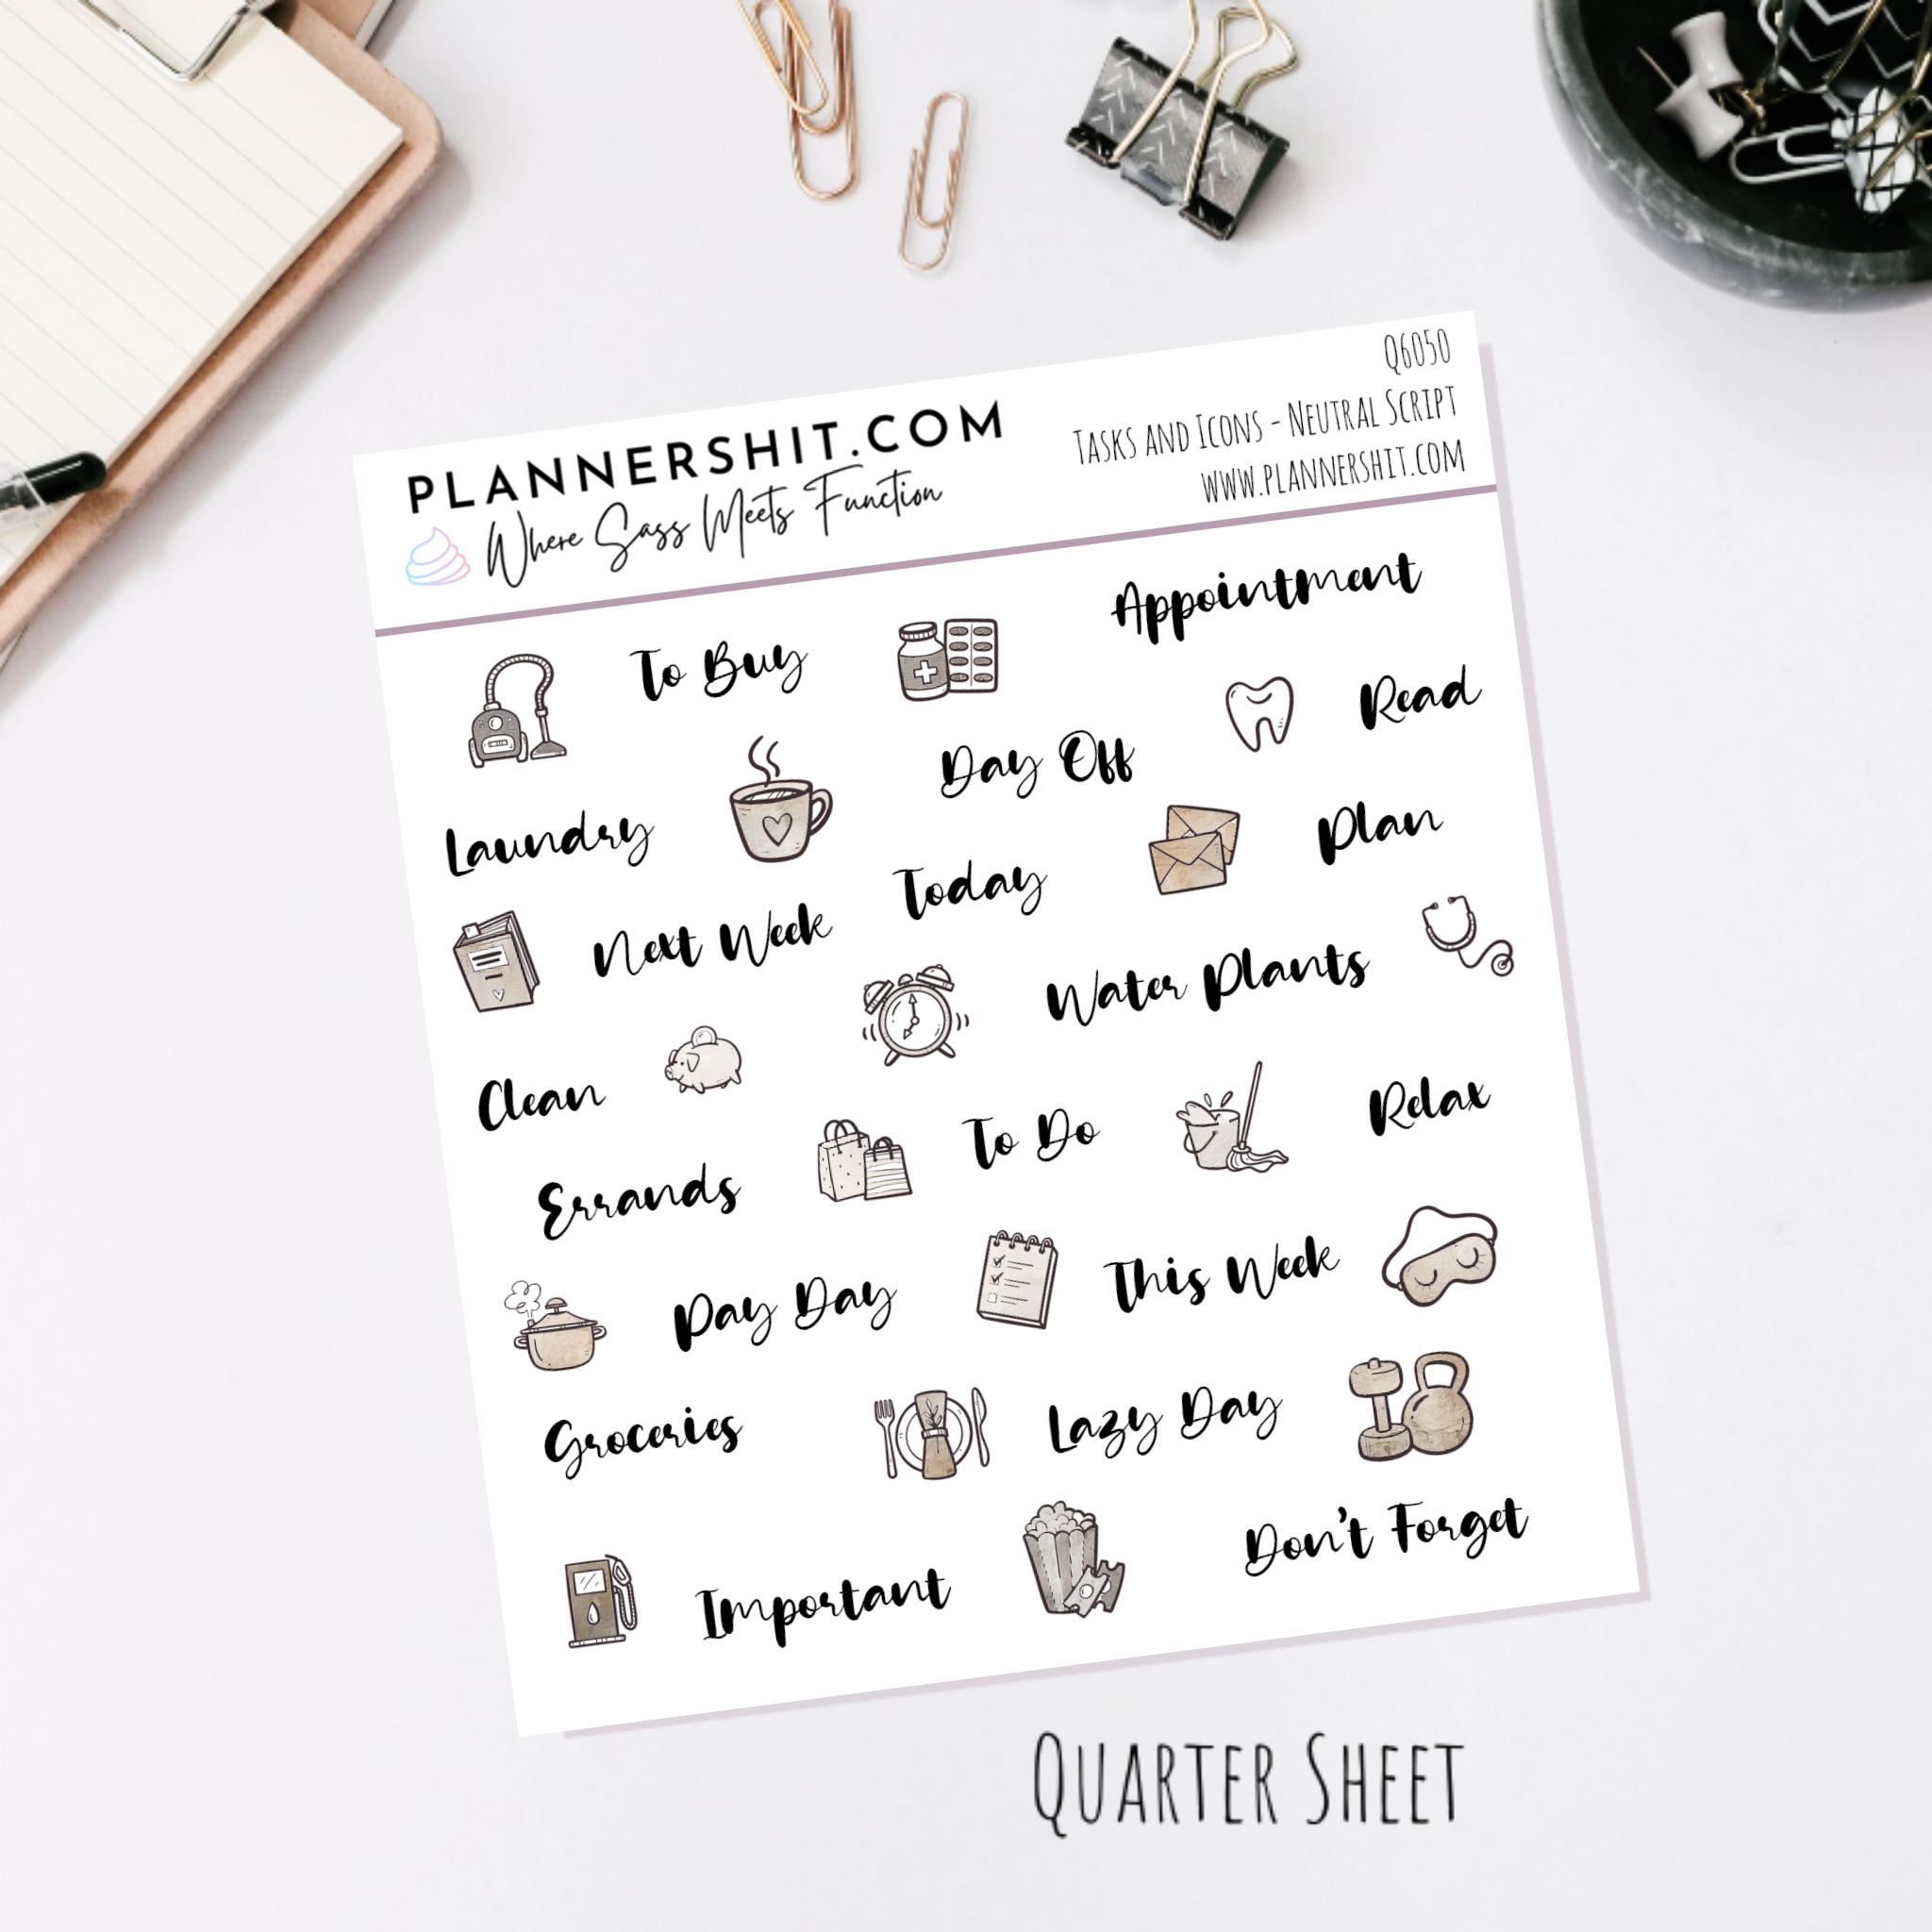 Q6050
PLANNERSHIT.COM
Tasks and Icons - Neutral Script
Where Sass Meets Function
www.plannershit.com
Appointment
To Buy
Read
Day Off
Laundry
Plan
Today
Next Week
Water Plants
Clean
Relax
To Do
Errands
This Week
Pay Day
Lazy Day
Groceries
Don't Forget
Important
Quarter Sheet